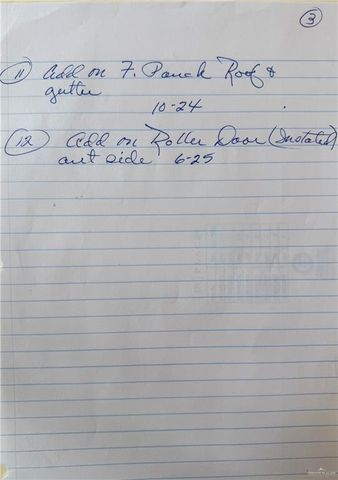 3
11 Add on F. Panel Roof &
gutter
10-24
12 Add on Roller Door (Installed)
out side 6-25